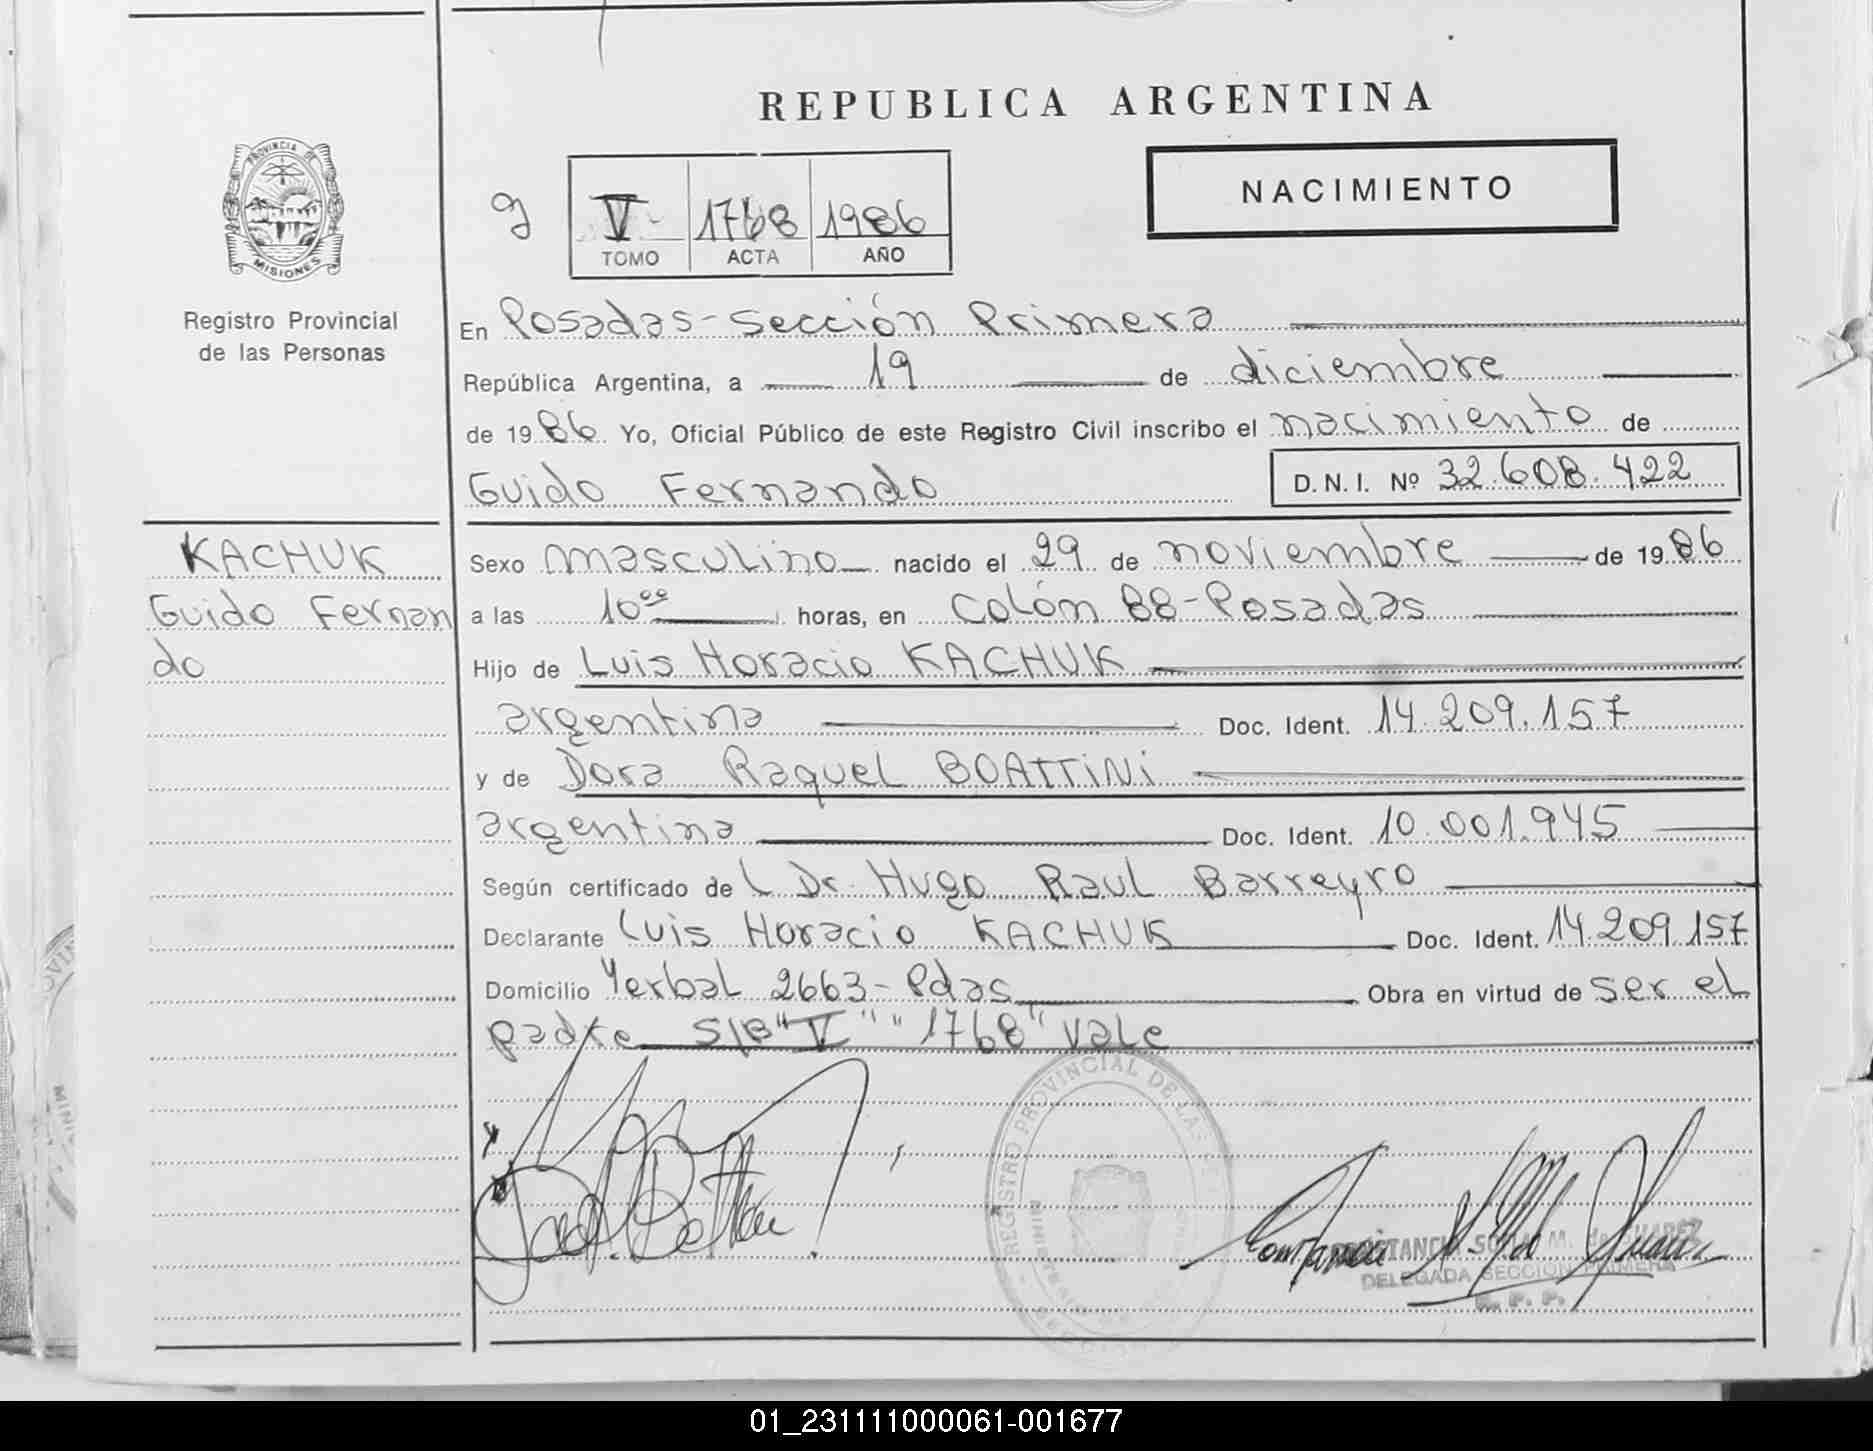 REPUBLICA ARGENTINA
PROVINCIA DE
MISIONES
NACIMIENTO
V 1768 1986
TOMO ACTA AÑO
Registro Provincial
de las Personas
En Posadas-Sección Primera
República Argentina, a 19 de diciembre
de 1986 Yo, Oficial Público de este Registro Civil inscribo el nacimiento de
Guido Fernando D.N.I. Nº 32.608.422
KACHUK
Guido Fernan
do
Sexo masculino nacido el 29 de noviembre de 1986
a las 10⁰⁰ horas, en Colón 88-Posadas
Hijo de Luis Horacio KACHUK
argentina Doc. Ident. 14.209.157
y de Dora Raquel BOATTINI
argentina Doc. Ident. 10.001.945
Según certificado de L Dr. Hugo Raul Barreyro
Declarante Luis Horacio KACHUK Doc. Ident. 14.209.157
Domicilio Yerbal 2663-Pdas Obra en virtud de ser el
padre S/B "V" "1768" Vale
REGISTRO PROVINCIAL DE LAS
DELEGADA SECCION PRIMERA
R. P. P.
01_231111000061-001677